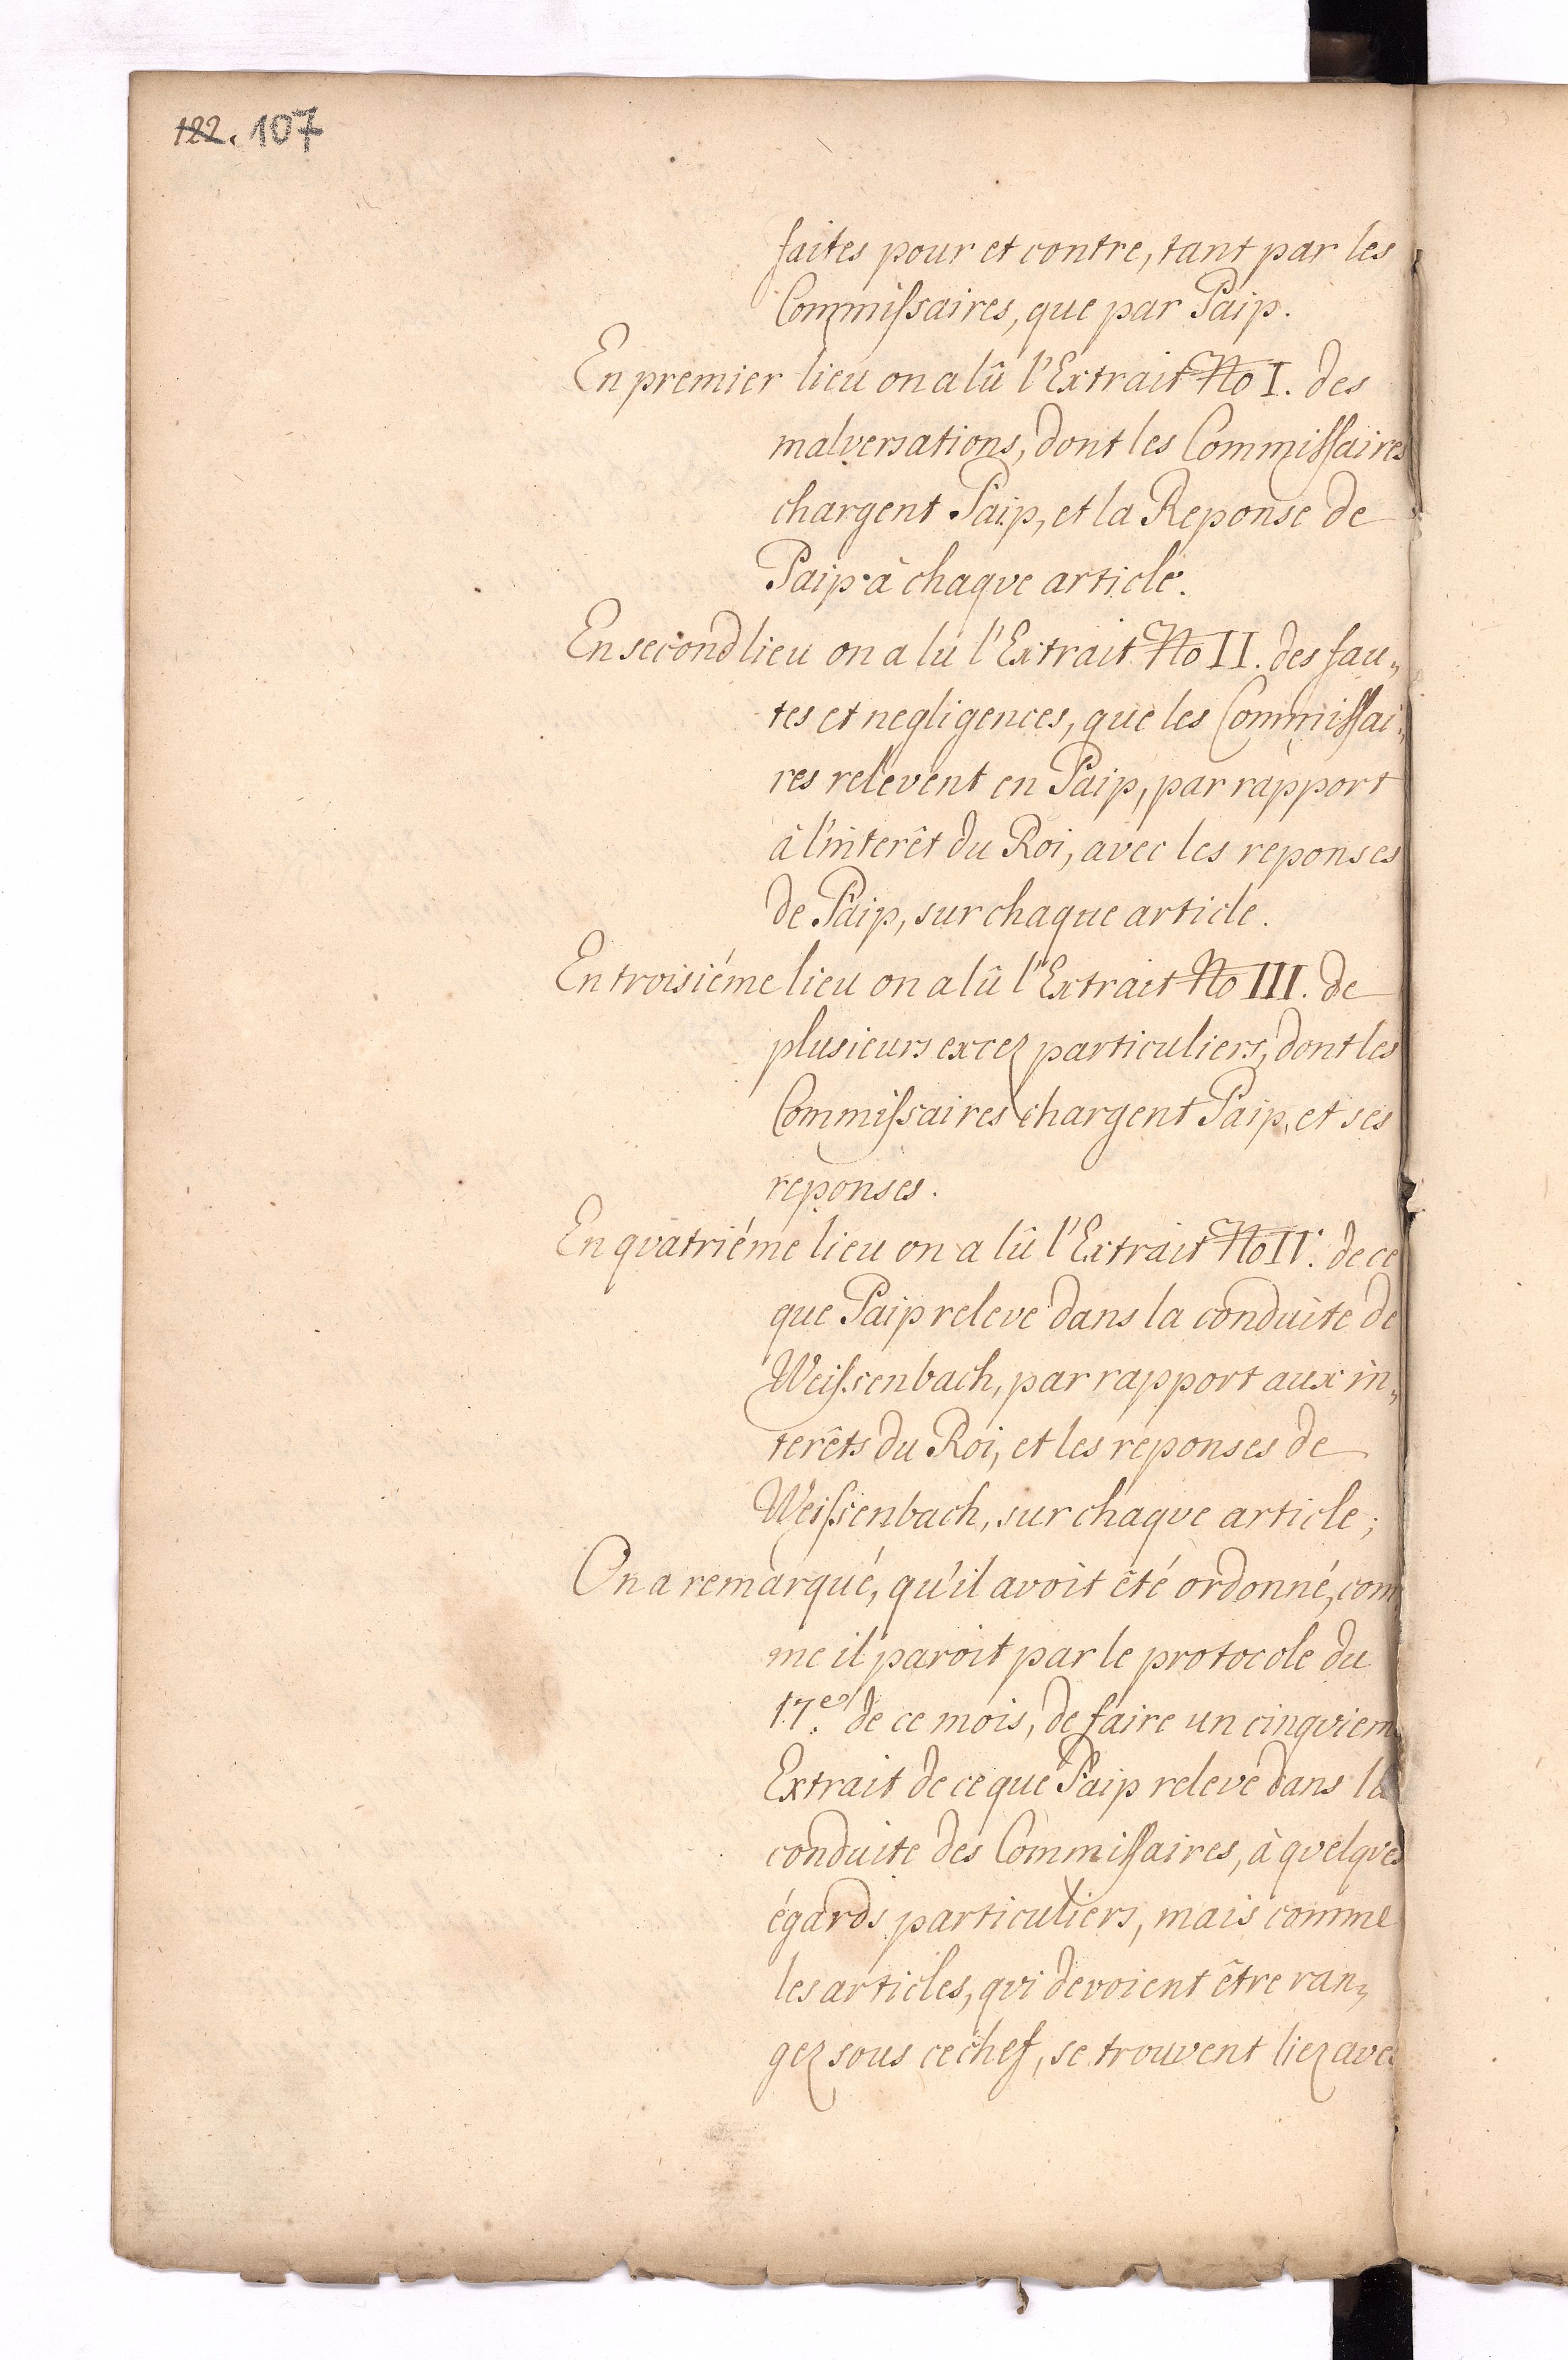 122. 107
faites pour et contre, tant par les
Commissaires, que par Paip.
En premier lieu on a lû l'Extrait No I. des
malversations, dont les Commissaires
chargent Paip, et la Reponse de
Paip à chaqve article.
En second lieu on a lu l'Extrait No II. des fau„
tes et negligences, que les Commissai„
res relevent en Paip, par rapport
à l'interêt du Roi, avec les reponses
de Paip, sur chaque article.
En troisiéme lieu on a lû l'Extrait No III. de
plusieurs excez particuliers, dont les
Commissaires chargent Paip, et ses
reponses.
En qvatriéme lieu on a lû l'Extrait No IV. de ce
que Paip releve dans la conduite de
Weissenbach, par rapport aux in„
terêts du Roi, et les reponses de
Weissenbach, sur chaqve article;
On a remarqué, qu'il avoit êté ordonné, com
me il paroit par le protocole du
17e. de ce mois, de faire un cinqviem
Extrait de ce que Paip releve dans la
conduite des Commissaires, à qvelqves
égards particuliers, mais comme
les articles, qvi devoient être ran„
gez sous ce chef, se trouvent liez avec